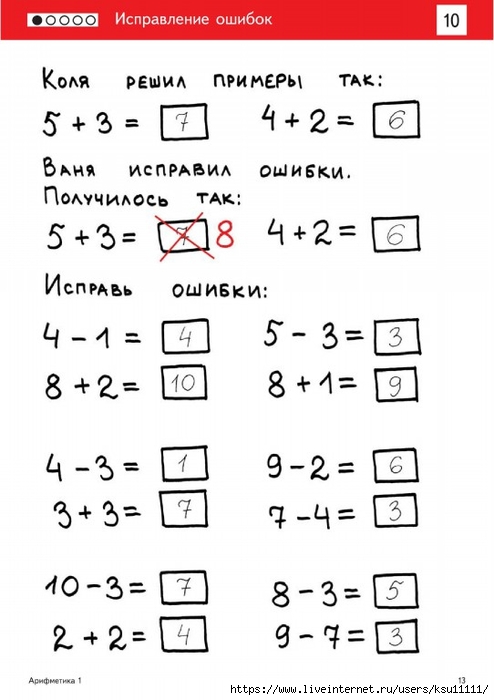 Исправление ошибок 10
Коля решил примеры так:
5 + 3 = 7 4 + 2 = 6
Ваня исправил ошибки.
Получилось так:
5 + 3 = 7 8 4 + 2 = 6
Исправь ошибки:
4 - 1 = 4 5 - 3 = 3
8 + 2 = 10 8 + 1 = 9
4 - 3 = 1 9 - 2 = 6
3 + 3 = 7 7 - 4 = 3
10 - 3 = 7 8 - 3 = 5
2 + 2 = 4 9 - 7 = 3
Арифметика 1 13
https://www.liveinternet.ru/users/ksu11111/